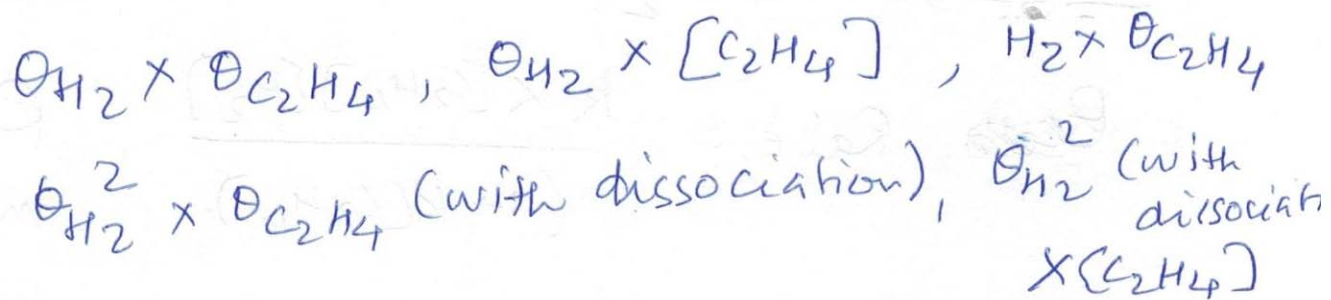 θH₂ × θC₂H₄, θH₂ × [C₂H₄], H₂ × θC₂H₄
θH₂² × θC₂H₄ (with dissociation), θH₂² (with
dissociat
×[C₂H₄]